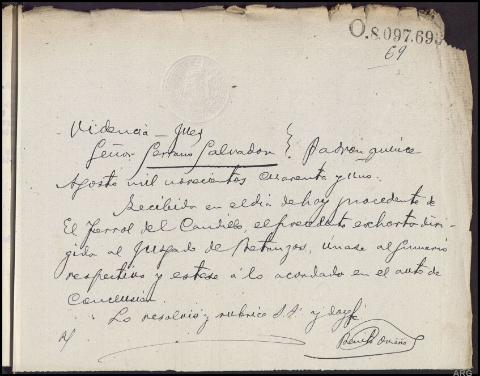 O.8.097.693
69
Videncia - Juez
Señor Serrano Salvador } Padrón quince
Agosto mil novecientos cuarenta y uno.
Recibido en el dia de hoy procedente de
El Ferrol del Caudillo, el precedente exhorto diri-
gido al Juzgado de Betanzos, unase al sumario
respectivo y estese a lo acordado en el auto de
Conclusión.
Lo resolvió y rubrica S.Sª y doy fe
ARG